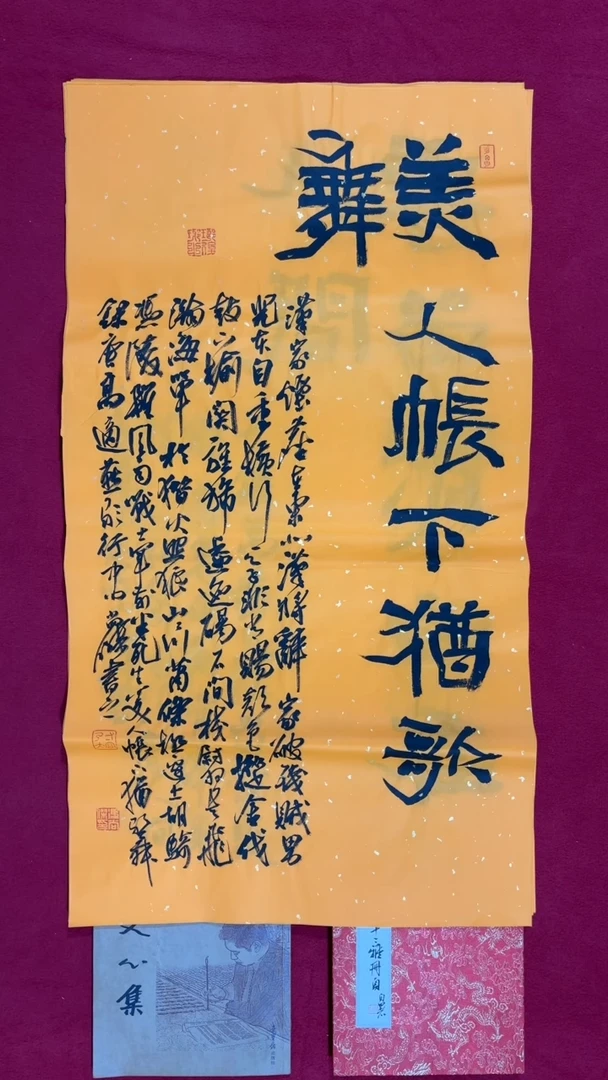 美人帳下猶歌
舞
漢家煙塵在東北漢將辭家破殘賊男
兒本自重橫行天子非常賜顏色摐金伐
鼓下榆關旌旆逶迤碣石間校尉羽書飛
瀚海單于獵火照狼山山川蕭條極邊土胡騎
憑陵雜風雨戰士軍前半死生美人帳下猶歌舞
錄唐高適燕歌行中句書之
文心集